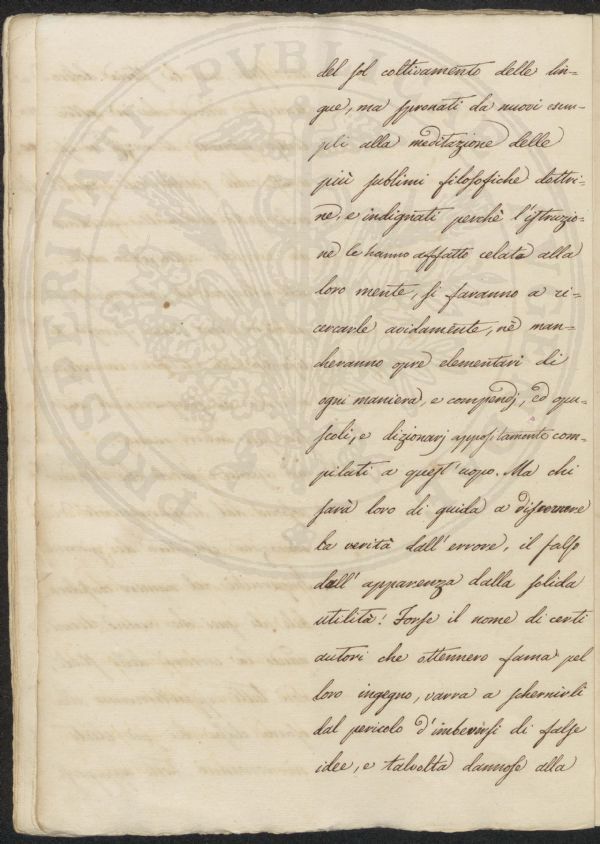 del sol coltivamento delle lin=
gue, ma spronati da nuovi esem=
pli alla meditazione delle
più sublimi filosofiche dottri=
ne, e indignati perchè l'istruzio=
ne le hanno affatto celate alla
loro mente, si faranno a ri=
cercarle avidamente, nè man=
cheranno opre elementari di
ogni maniera, e compendj, ed opu=
scoli, e dizionarj appositamente com=
pilati a quest'uopo. Ma chi
sarà loro di guida a discernere
la verità dall'errore, il falso
dall'apparenza dalla solida
utilità! Forse il nome di certi
autori che ottennero fama pel
loro ingegno, varrà a schernirli
dal pericolo d'imbeversi di false
idee, e talvolta dannose alla
PROSPERITATI PUBLIC